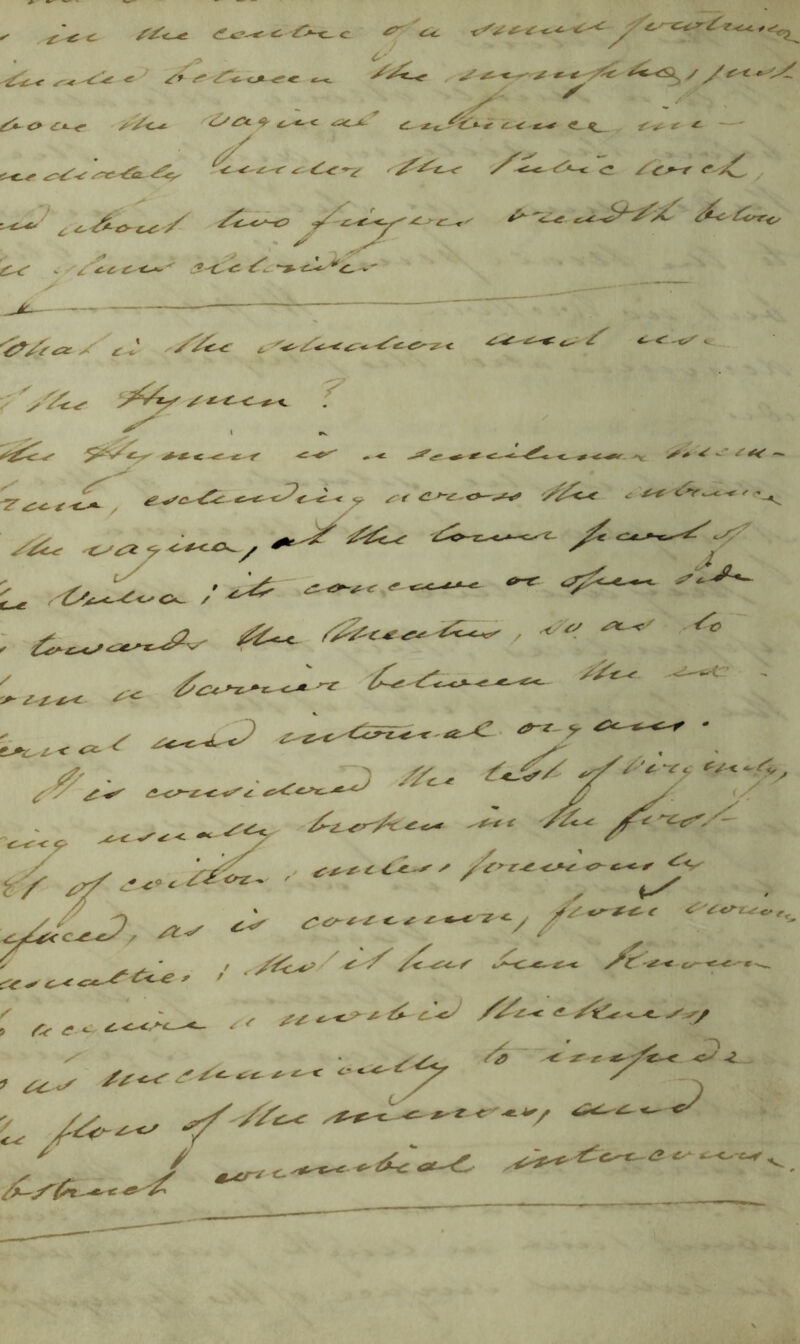 in the centre of a
between the nymphæ, just
above the vaginal entrance, im-
mediately under the Pubic arch,
about two fingers breadth below
What is the situation and use
of the Hymen?
The Hymen is a semilunar mem-
, occasionally across the entrance
the vagina, at the lower part of
the Vulva; its concave or open side
towards the Meatus, so as to
form a barrier between the ex-
ternal and internal organs.
It is considered the test of Virginity,
usually broken in the first
of coition, unless previously
effaced, as is common, from various
casualties; tho' it has been known
to acquire a morbid thickness,
as mechanically to impede
the flow of the menses, and
obstruct